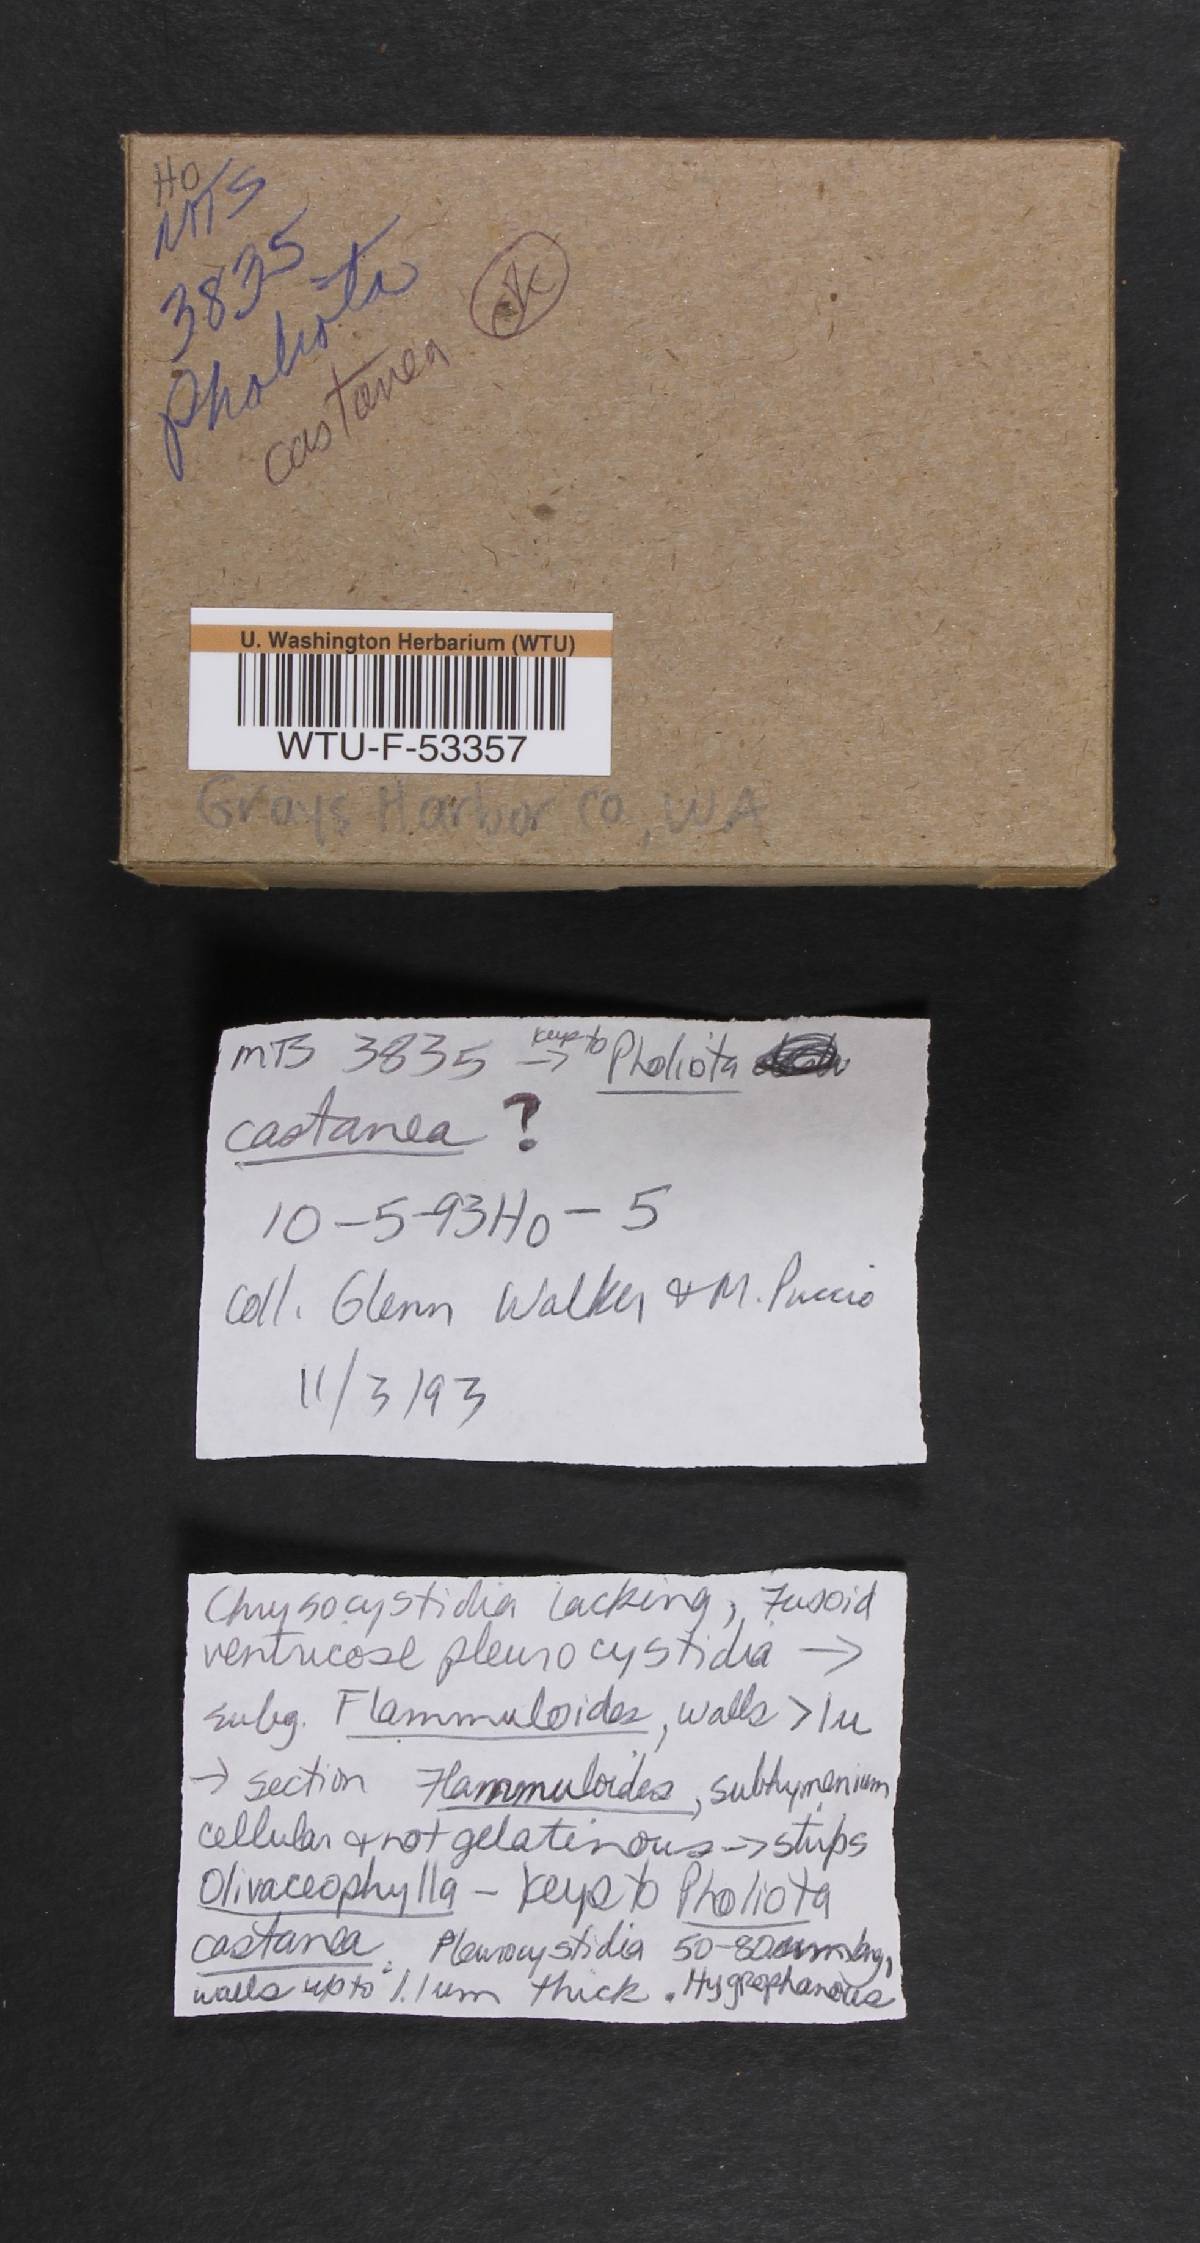 HO
MTS
3835
Pholiota
castanea ok
U. Washington Herbarium (WTU)
WTU-F-53357
Grays Harbor Co, WA
MTS 3835 keys to → Pholiota
castanea ?
10-5-93Ho-5
coll. Glenn Walker & M. Puccio
11/3/93
Chrysocystidia lacking, Fusoid
ventricose pleurocystidia →
subg. Flammuloides, walls >1u
→ section Flammuloides, subhymenium
cellular & not gelatinous → stirps
Olivaceophylla - keys to Pholiota
castanea. Pleurocystidia 50-80 um long,
walls up to 1.1um thick. Hygrophanous